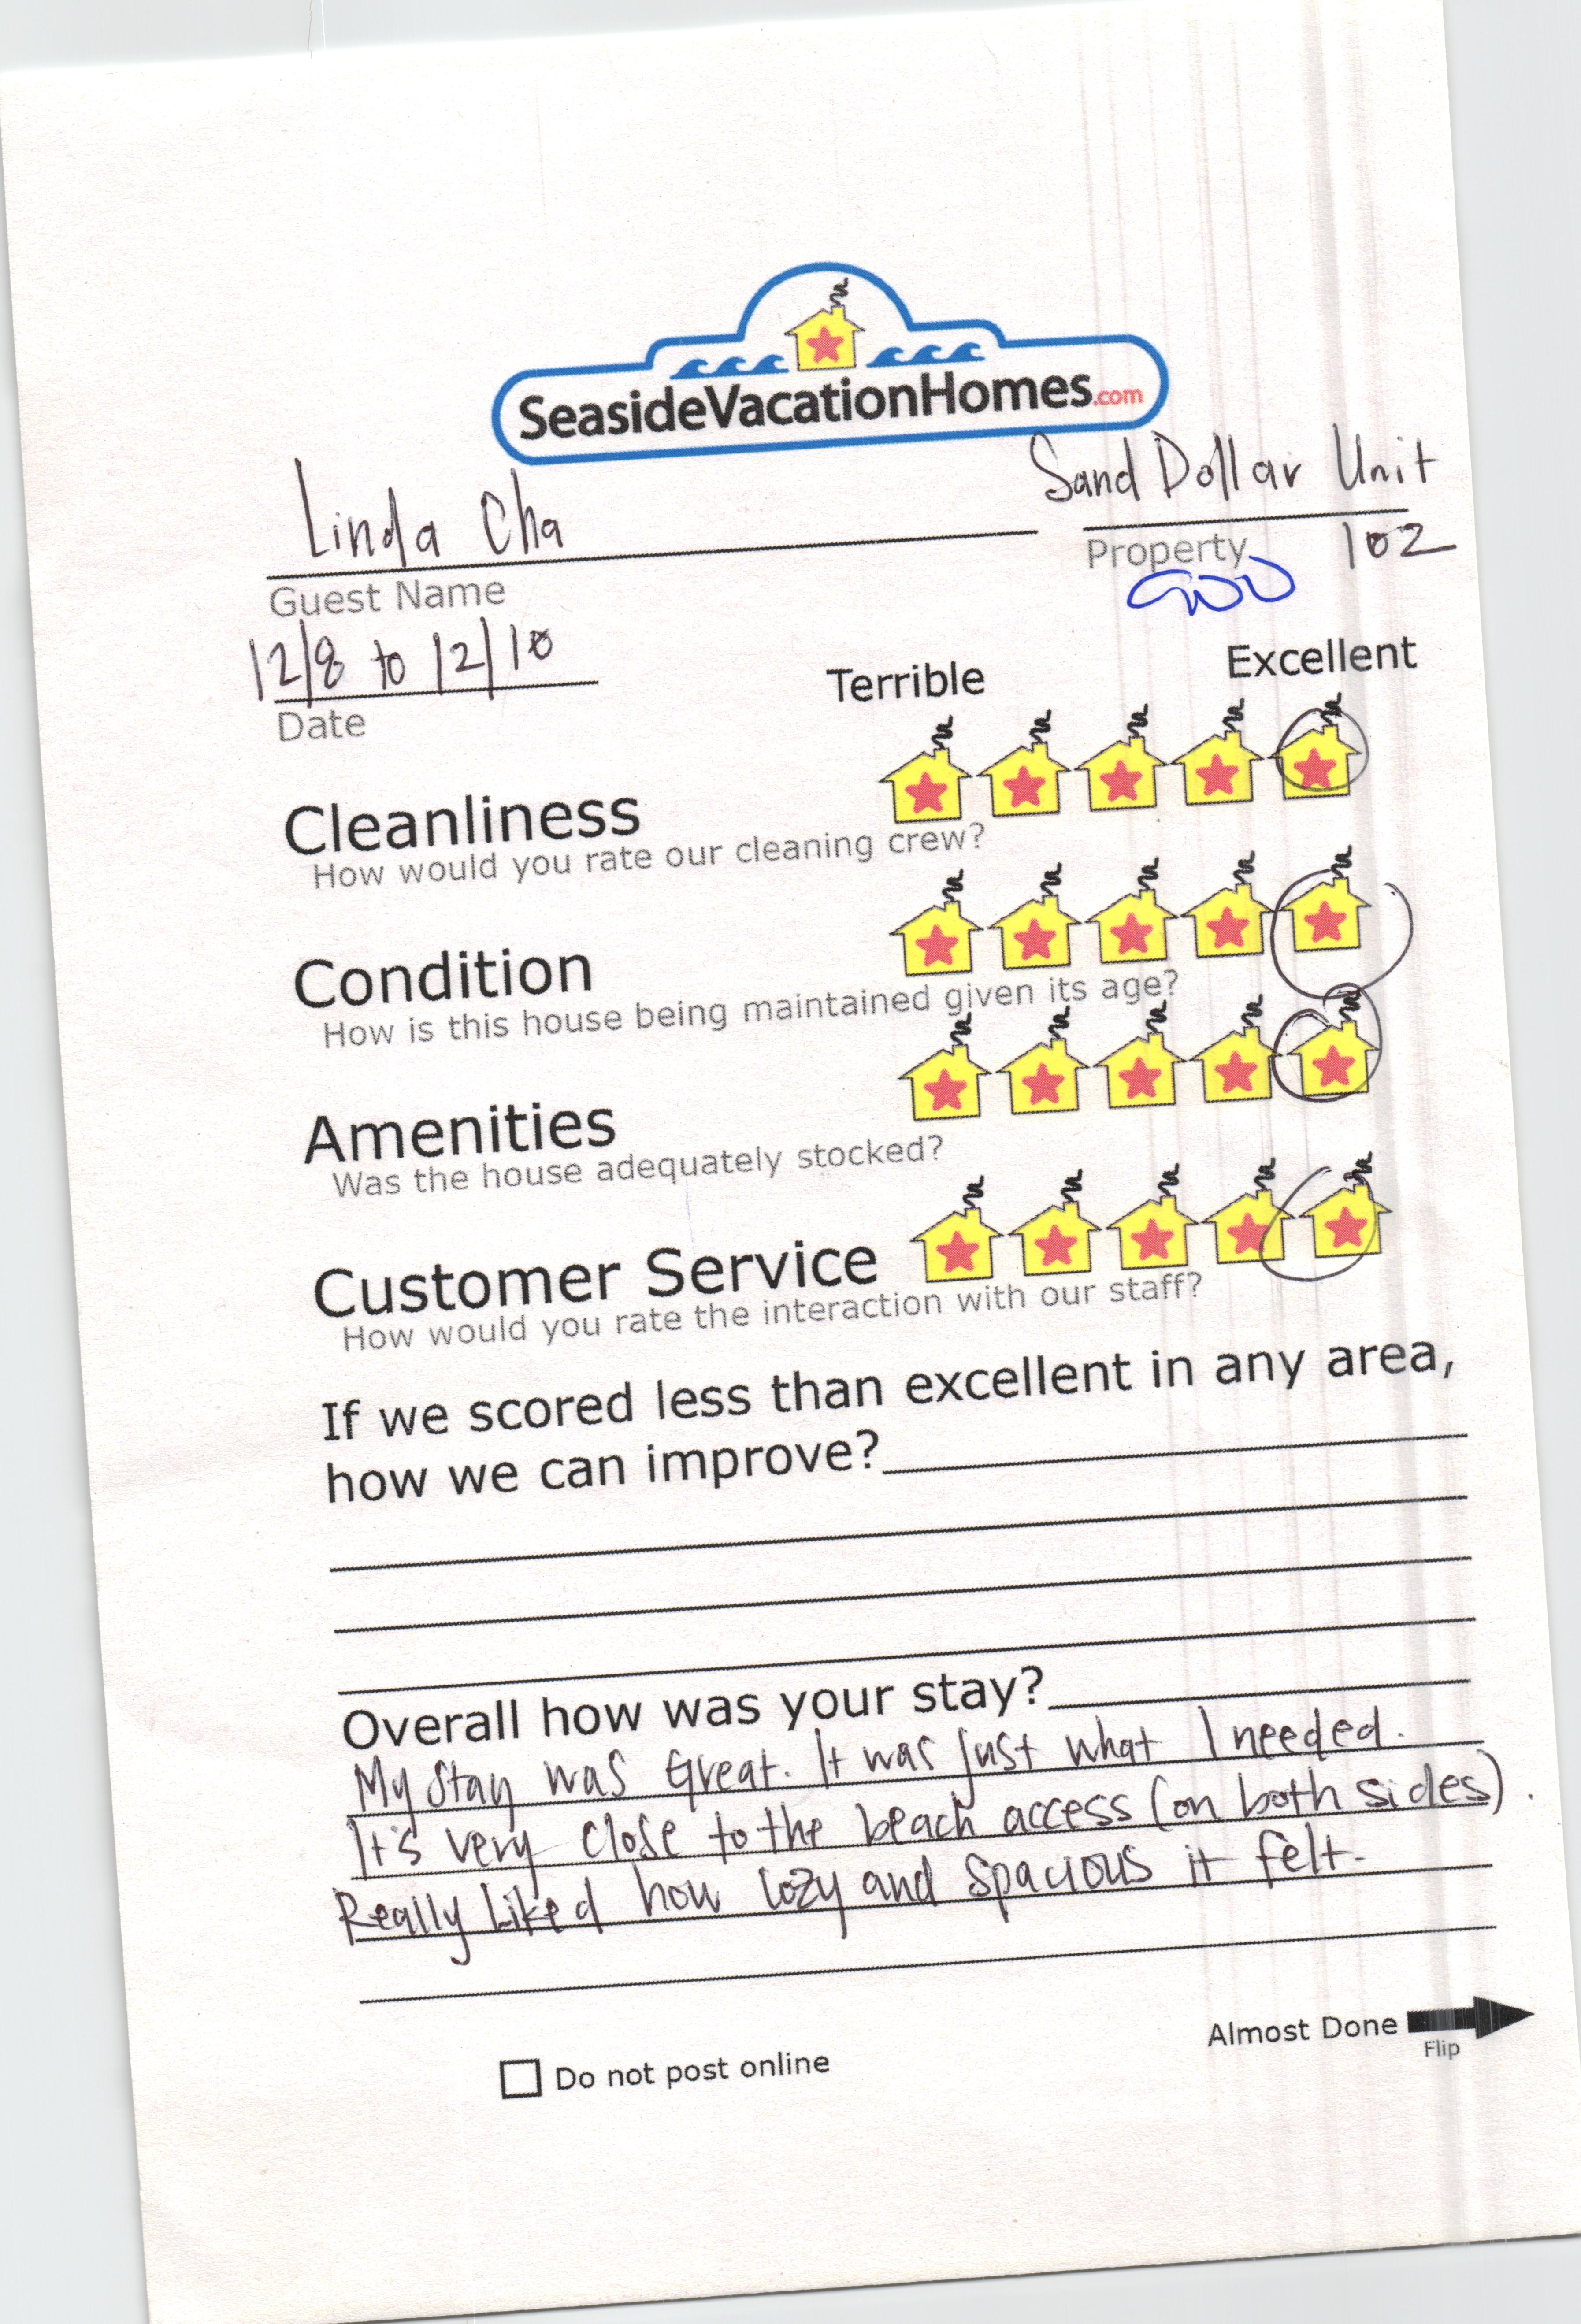 SeasideVacationHomes.com
Linda Cha
Sand Dollar Unit
Guest Name
Property 102
900
12/8 to 12/10
Date
Terrible Excellent
Cleanliness
How would you rate our cleaning crew?
Condition
How is this house being maintained given its age?
Amenities
Was the house adequately stocked?
Customer Service
How would you rate the interaction with our staff?
If we scored less than excellent in any area,
how we can improve?
Overall how was your stay?
My stay was great. It was just what I needed.
It's very close to the beach access (on both sides).
Really liked how cozy and spacious it felt.
Almost Done
Flip
Do not post online